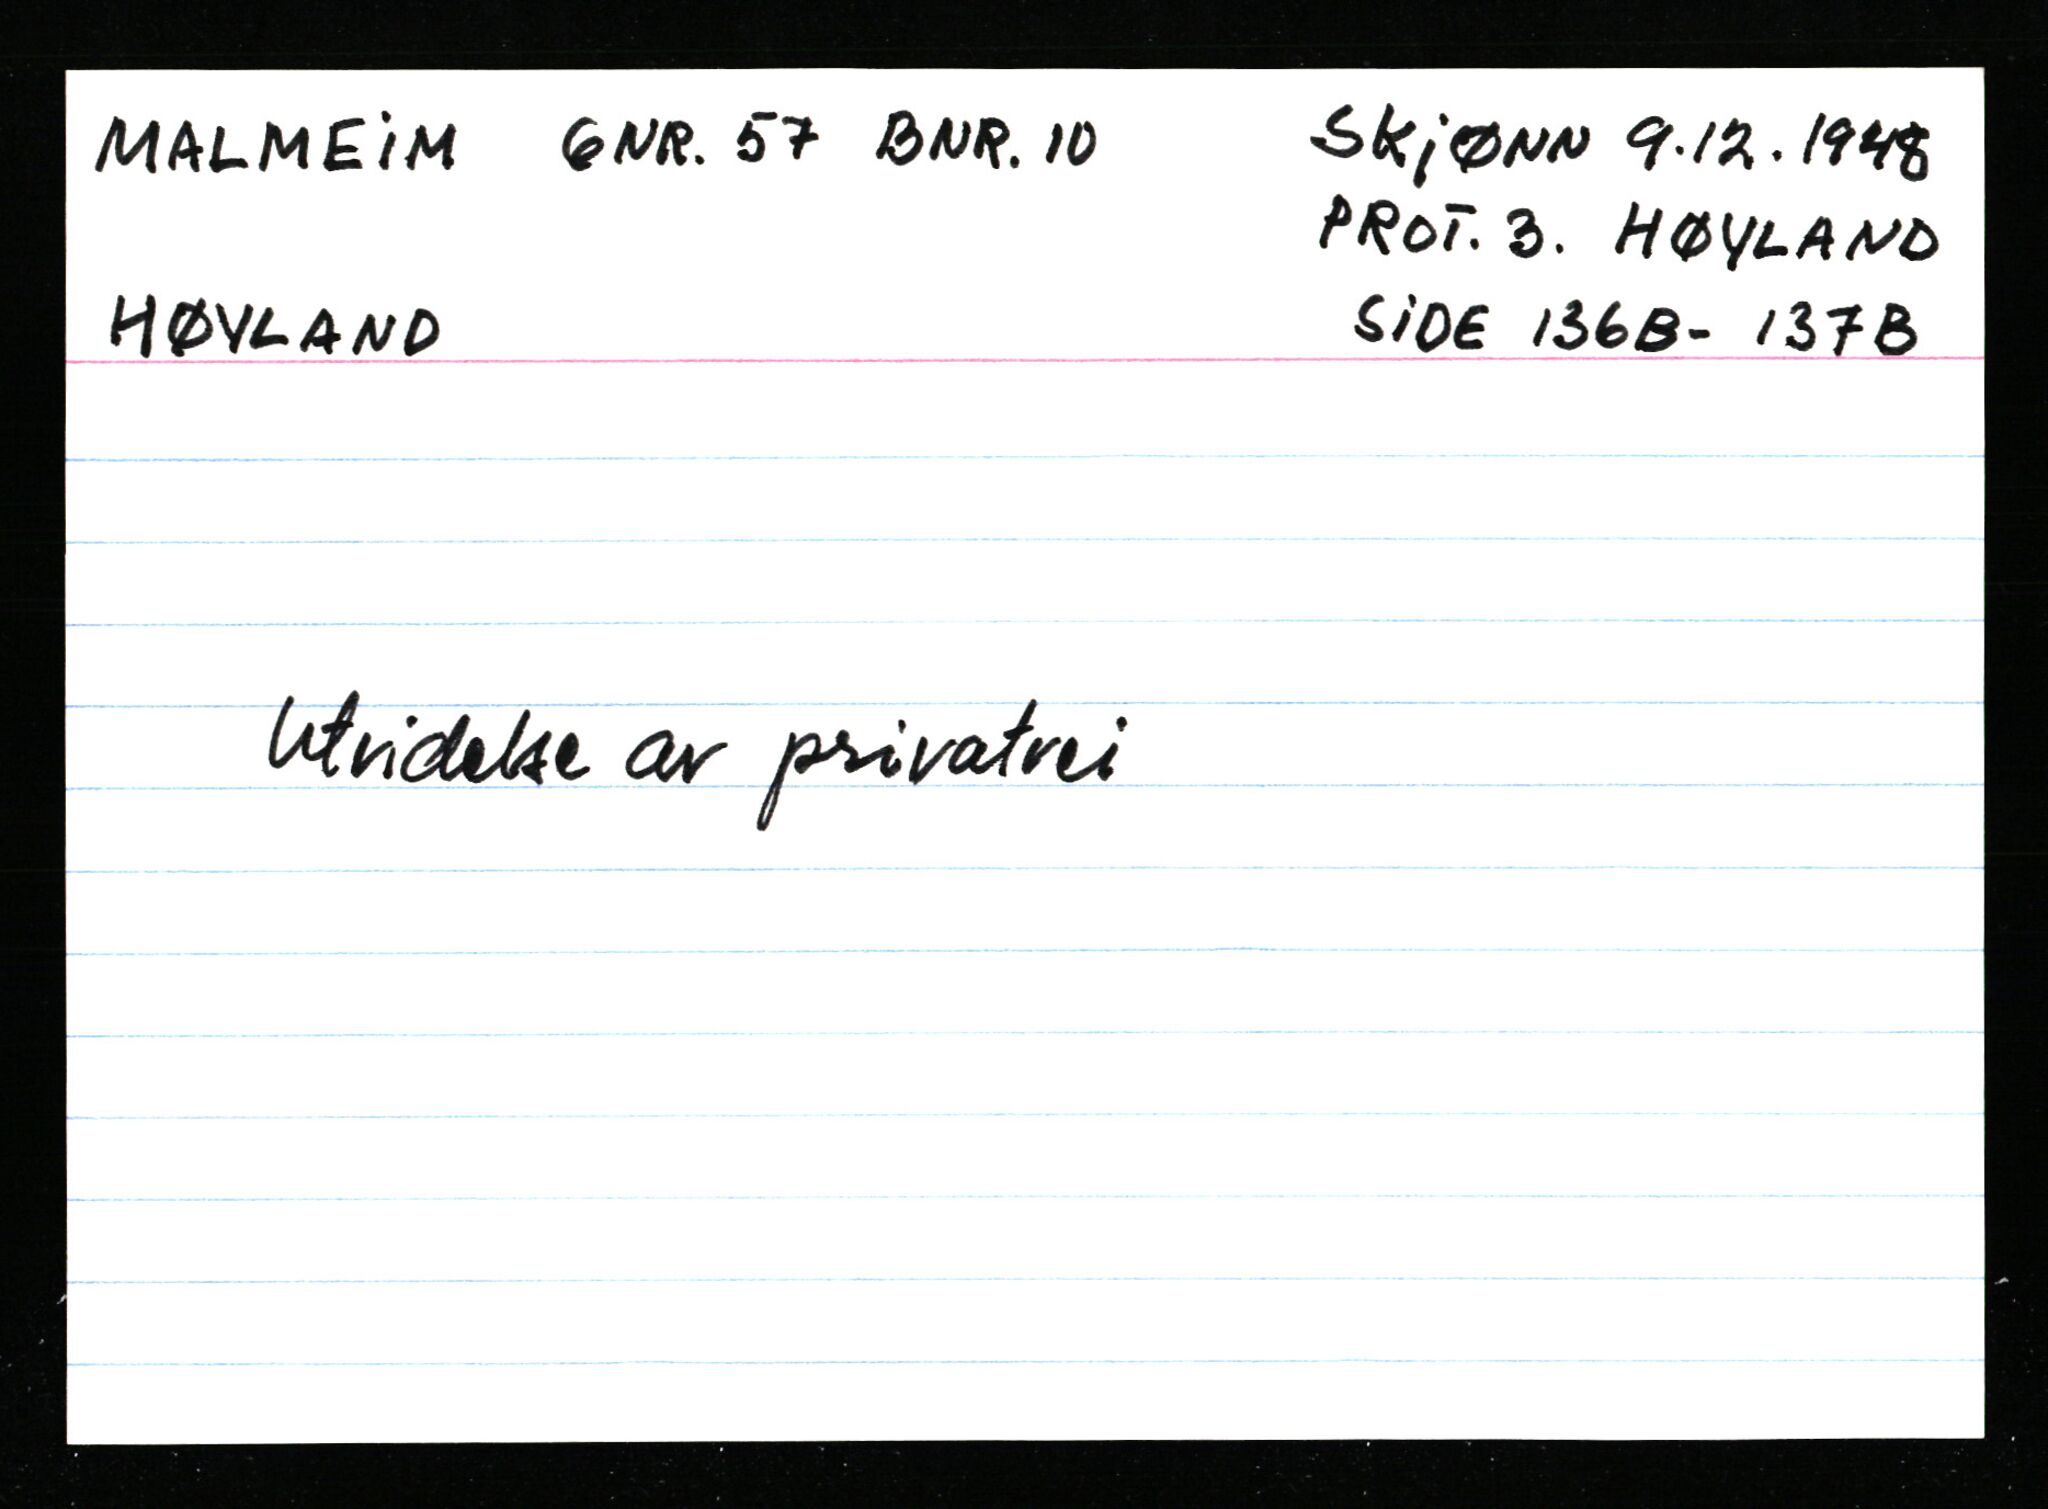 MALMEiM GNR. 57 BNR. 10 SKjØNN 9.12.1948
PROT. 3. HØYLAND
HØYLAND SiDE 136B- 137B
Utvidelse av privatvei